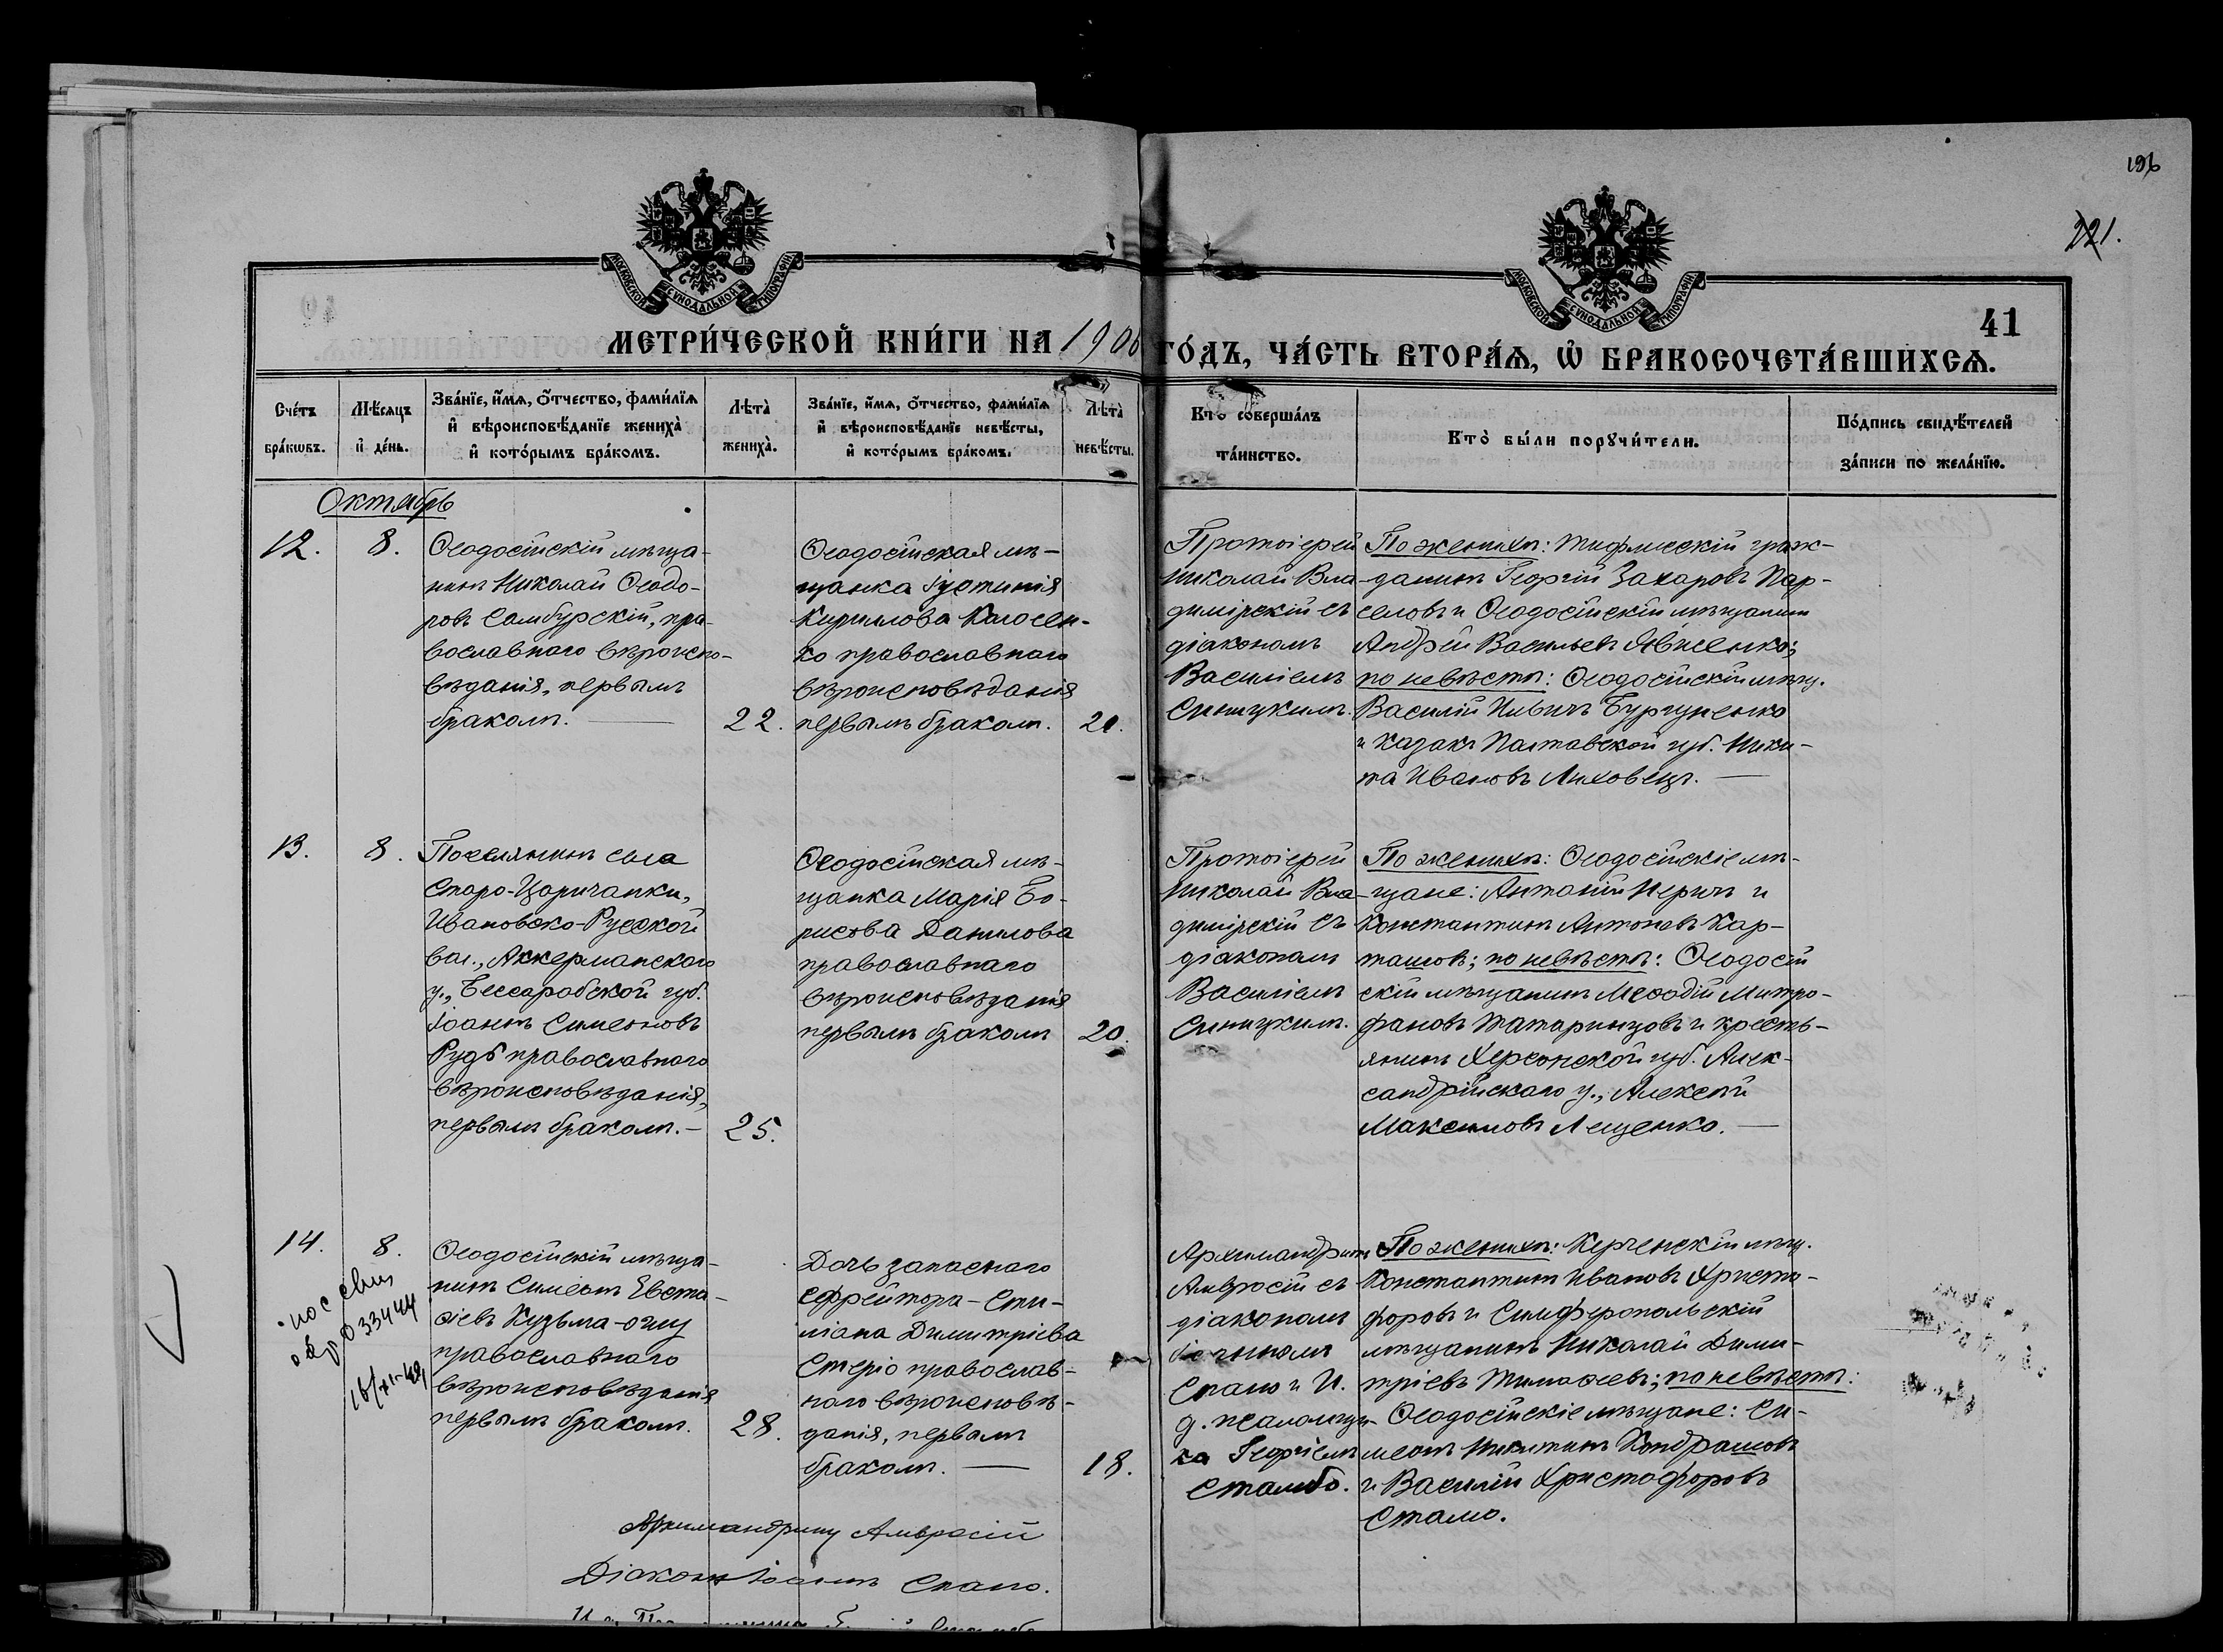 196
221.
МОСКОВСКОЙ СѴНОДАЛЬНОЙ ТИПОГРАФІИ
МОСКОВСКОЙ СѴНОДАЛЬНОЙ ТИПОГРАФІИ
41
МЕТРИ́ЧЕСКОЙ КНИ́ГИ НА 1906
ГО́ДЪ, ЧА́СТЬ ВТОРА́Ѧ, Ѡ҆ БРАКОСОЧЕТА́ВШИХСѦ.
Сче́тъ
бра́кωвъ.
Мѣ́сѧцъ
и҆ де́нь.
Зва́нїе, и҆́мѧ, о҆́тчество, фами́лїѧ
и҆ вѣроисповѣ́данїе жениха̀
и҆ кото́рымъ бра́комъ.
Лѣ́та̀
жениха̀.
Зва́нїе, и҆́мѧ, о҆́тчество, фами́лїѧ
и҆ вѣроисповѣ́данїе невѣ́сты,
и҆ кото́рымъ бра́комъ.
Лѣ́та̀
невѣ́сты.
Кто̀ соверша́лъ
та́инство.
Кто̀ бы́ли порꙋчи́тели.
По́дпись свидѣ́телей
за́писи по жела́нїю.
Октябрь
12.
8.
Ѳеодосійскій мѣща-
нинъ Николай Ѳеодо-
ровъ Самбурскій, пра-
вославнаго вѣроиспо-
вѣданія, первымъ
бракомъ.
22.
Ѳеодосійская мѣ-
щанка Іустинія
Кириллова
ко православнаго
вѣроисповѣданія
первымъ бракомъ.
21.
Протоіерей
Николай Вла-
димірскій съ
діакономъ
Василіемъ
Синицкимъ.
По женихѣ: Тифлисскій граж-
данинъ Георгій Захаровъ Пар-
селовъ и Ѳеодосійскій мѣщанинъ
Андрей Васильевъ
по невѣстѣ: Ѳеодосійскій мѣщ.
Василій Ильичъ
и казакъ Полтавской губ. Ники-
та Ивановъ Лиховецъ.
13.
8.
Поселянинъ села
Старо-Царичанки,
Ивановско-Русской
вол., Аккерманскаго
у., Бессарабской губ.
Іоаннъ Симеоновъ
Рудь православнаго
вѣроисповѣданія,
первымъ бракомъ.
25.
Ѳеодосійская мѣ-
щанка Марія Бо-
рисова Данилова
православнаго
вѣроисповѣданія
первымъ бракомъ
20.
Протоіерей
Николай Вла-
димірскій съ
діакономъ
Василіемъ
Синицкимъ.
По женихѣ: Ѳеодосійскіе мѣ-
щане: Антоній Перичъ и
Константинъ Антоновъ Кар-
ташовъ; по невѣстѣ: Ѳеодосій
скій мѣщанинъ Меѳодій Митро-
фановъ Татаринцовъ и кресть-
янинъ Херсонской губ. Алек-
сандрійскаго у., Алексѣй
Максимовъ Лещенко.
14.
8.
пос свид
033444
Ѳеодосійскій мѣща-
нинъ Симеонъ Евста-
ѳіевъ Кузьма-оглу
православнаго
вѣроисповѣданія
первымъ бракомъ.
28.
Дочь запаснаго
Ефрейтора - Сти-
ліана Димитріева
Стеріо православ-
наго вѣроисповѣ-
данія, первымъ
бракомъ.
18.
Архимандритъ
Амвросій съ
діакономъ
Іоанномъ
Спано и И.
д. псаломщи-
ка Георгіемъ
Стамбо.
По женихѣ: Керченскій мѣщ.
Константинъ Ивановъ Христо-
форовъ и Симферопольскій
мѣщанинъ Николай Дими-
тріевъ Тимоѳеевъ; по невѣстѣ:
Ѳеодосійскіе мѣщане: Си-
меонъ Никитинъ Кондрашовъ
и Василій Христофоровъ
Стамо.
Архимандритъ Амвросій
Діаконъ Іоаннъ Спано.